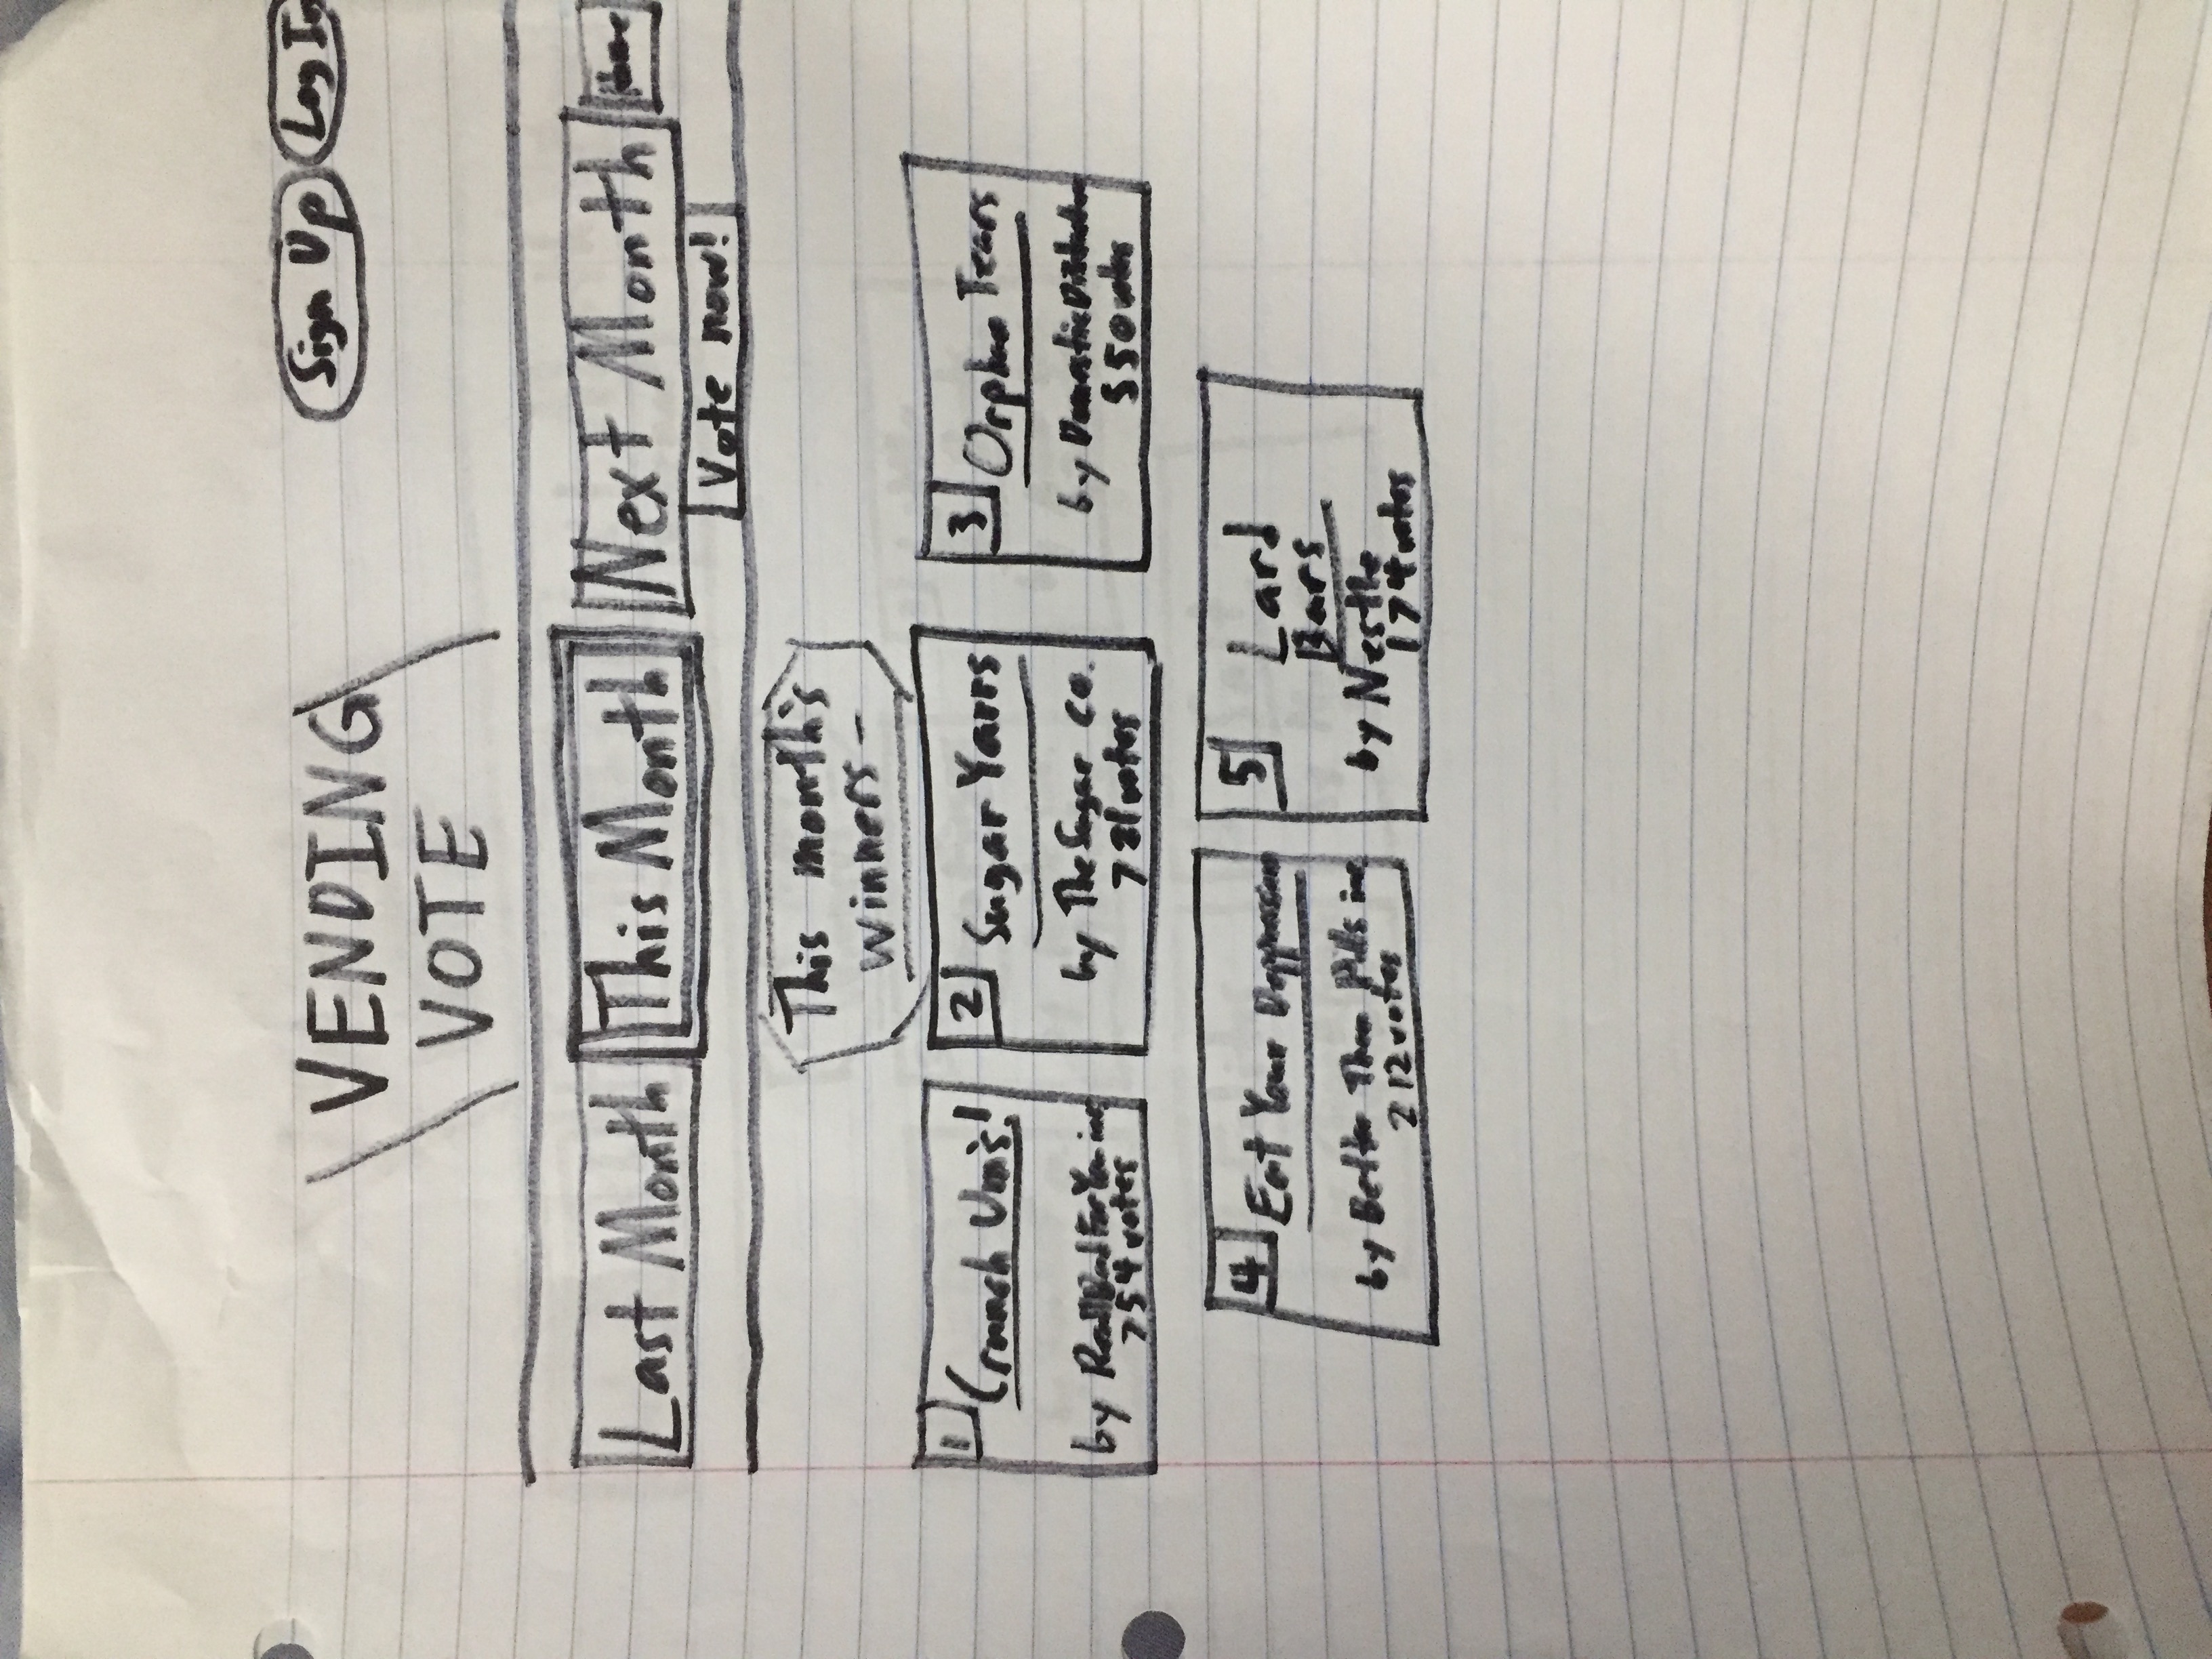 VENDING
VOTE
Sign Up
Log In
Last Month
This Month
Next Month
Home
Vote now!
This month's
winners -
1
Crunch Um's!
by Really Bad For You inc.
754 votes
2
Sugar Yarrs
by The Sugar co.
721 votes
3
Orphan Tears
by Domestic
550 votes
4
Eat Your Deppression
by Better Than Pills inc.
212 votes
5
Lard
Bars
by Nestle
174 votes